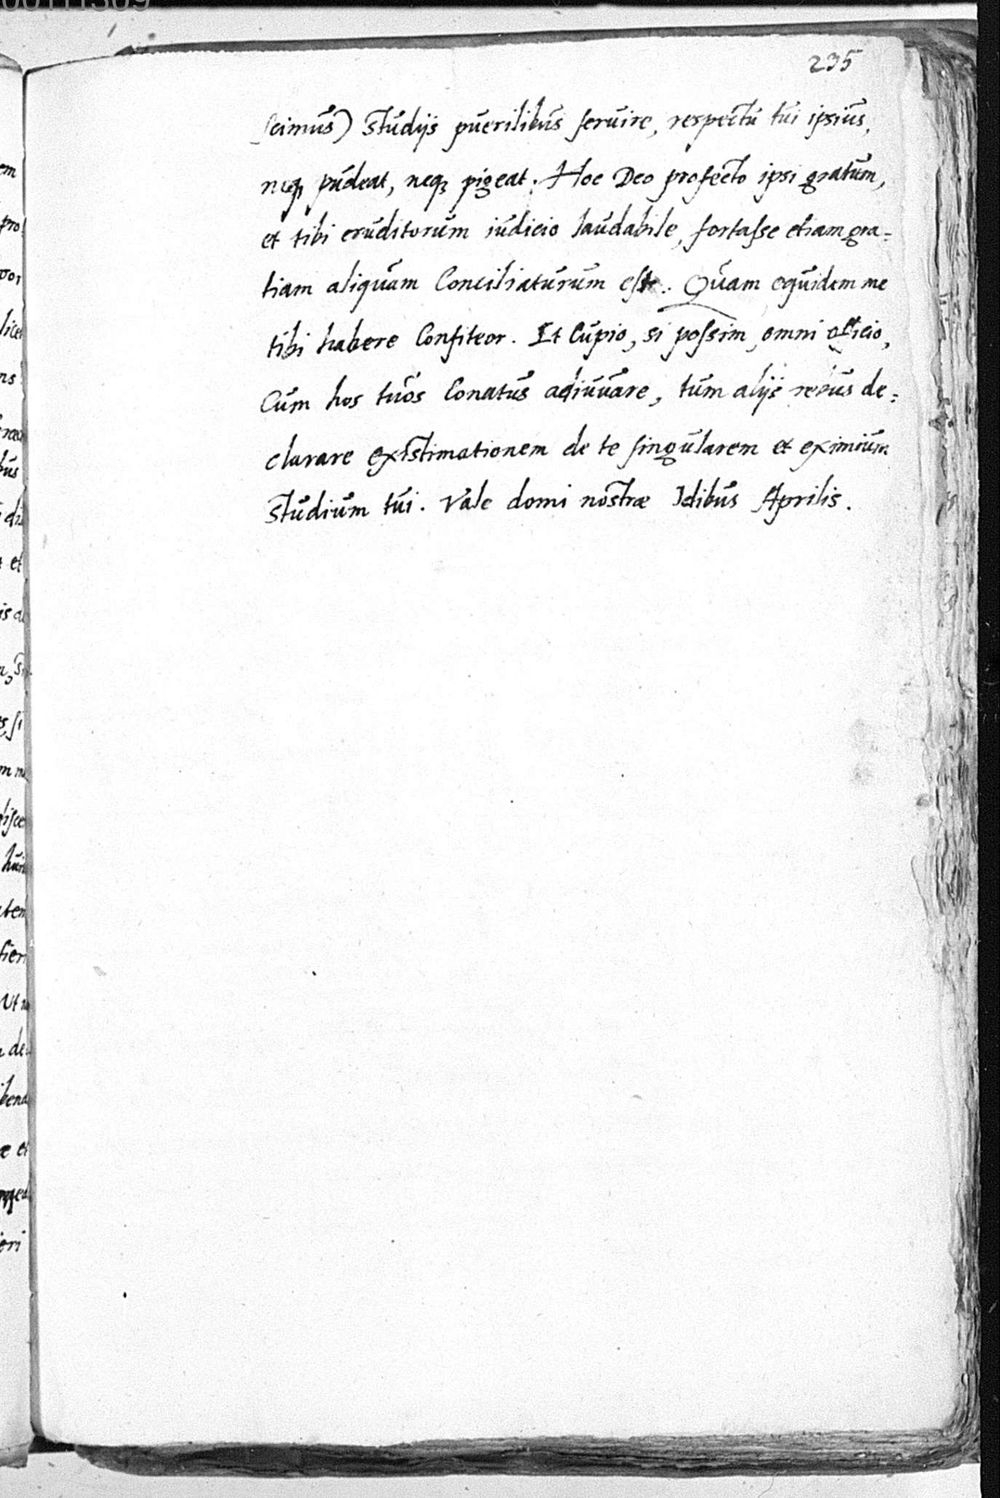 235
scimus) studijs puerilibus seruire, respectu tui ipsius,
neq; pudeat, neq; pigeat. Hoc Deo profecto ipsi gratum,
et tibi eruditorum iudicio laudabile, fortasse etiam gra=
tiam aliquam Conciliaturum est. Quam equidem me
tibi habere Confiteor. Et Cupio, si possim, omni officio,
Cum hos tuos Conatus adiuuare, tum alijs rebus de=
clarare existimationem de te singularem et eximium
studium tui. Vale domi nostræ Idibus Aprilis.